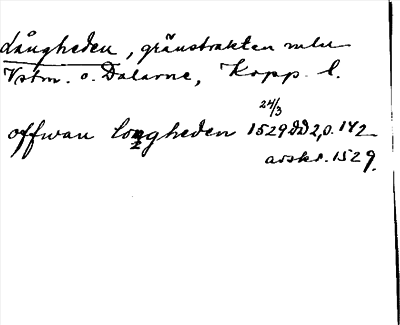 Långheden, gränstrakten mlu
Vstm. o. Dalarne, Kopp. l.
24/3
offwan longheden 1529 DD2, s. 142
avskr. 1529.